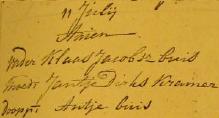 11 Julij
Vader Klaas Jacobsz buis
Moedr Jantje Dirks Kramer
doopnt Antje buis